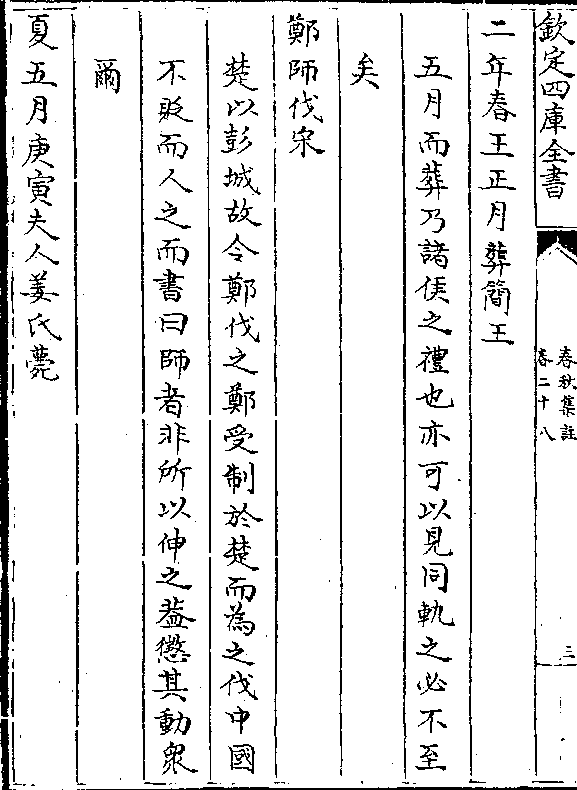 欽定四庫全書
春秋集註
卷二十八
三
二年春王正月葬簡王
五月而葬乃諸侯之禮也亦可以見同軌之必不至
矣
鄭師伐宋
楚以彭城故令鄭伐之鄭受制於楚而為之伐中國
不貶而人之而書曰師者非所以伸之葢懲其動衆
爾
夏五月庚寅夫人姜氏薨